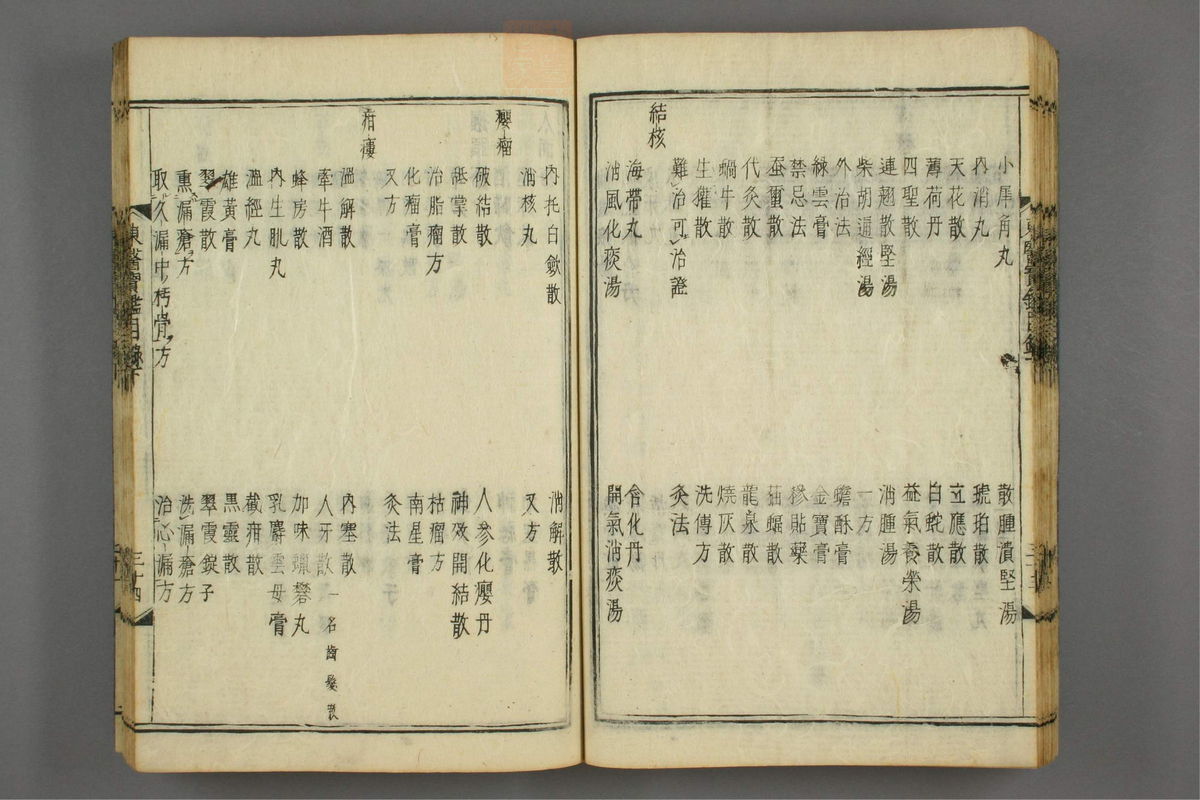 小犀角丸 散腫潰堅湯
內消丸 琥珀散
天花散 立應散
薄荷丹 白蛇散
四聖散 益氣養榮湯
連翹散堅湯 消腫湯
柴胡通經湯 一方
外治法 蟾酥膏
綠雲膏 金寶膏
禁忌法 糝貼藥
蚕蠒散 蝠散
代灸散 龍泉散
蝸牛散 燒灰散
生玃散 洗傅方
難治可治證 灸法
結核
海帶丸 含化丹
消風化痰湯 開氣消痰湯
內托白斂散 消解散
消核丸 又方
癭瘤
破結散 人參化癭丹
舐掌散 神效開結散
治脂瘤方 枯瘤方
化瘤膏 南星膏
又方 灸法
疳瘻
溫解散 內塞散
牽牛酒 人牙散一名齒髮散
蜂房散 加味蠟礬丸
內生肌丸 乳麝雲母膏
溫經丸 截疳散
雄黃膏 黑靈散
翠霞散 翠霞錠子
熏漏瘡方 洗漏瘡方
取久漏中朽骨方 治心漏方
東醫寶鑑目錄下 三十四